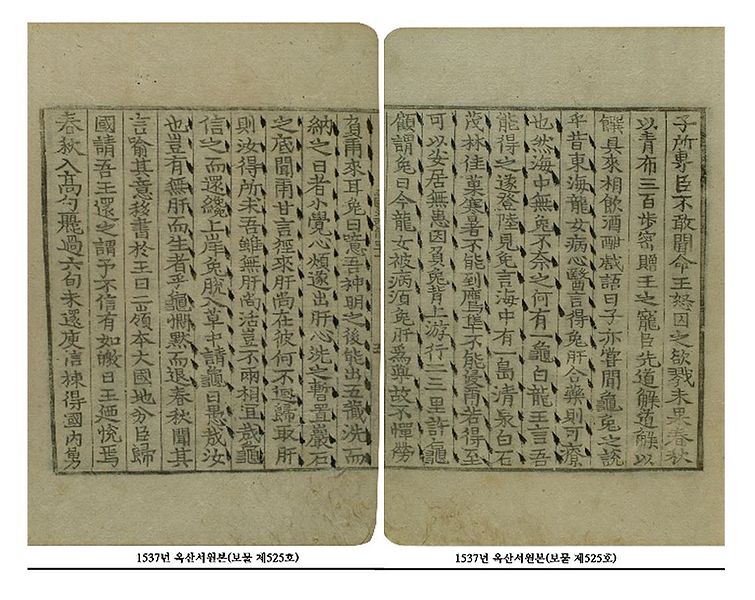 子所專臣不敢聞命王怒囚之欲戮未果春秋
以青布三百步密贈王之寵臣先道解道解以
饌具來相飮酒酣戱語曰子亦嘗聞龜兔之說
乎昔東海龍女病心醫言得兔肝合藥則可療
也然海中無兔不奈之何有一龜白龍王言吾
能得之遂登陸見兔言海中有一島清泉白石
茂林佳菓寒暑不能到鷹隼不能侵爾若得至
可以安居無患因負兔背上游行二三里許龜
顧謂兔曰今龍女被病須兔肝爲藥故不憚勞
負爾來耳兔曰噫吾神明之後能出五藏洗而
納之日者小覺心煩遂出肝心洗之暫置巖石
之底聞爾甘言徑來肝尚在彼何不廻歸取肝
則汝得所求吾雖無肝尚活豈不兩相宜哉龜
信之而還纔上岸兔脫入草中謂龜曰愚哉汝
也豈有無肝而生者乎龜憫默而退春秋聞其
言喩其意移書於王曰二嶺本大國地分臣歸
國請吾王還之謂予不信有如皦日王迺悅焉
春秋入高句麗過六旬未還庾信揀得國內勇
1537년 옥산서원본(보물 제525호)
1537년 옥산서원본(보물 제525호)